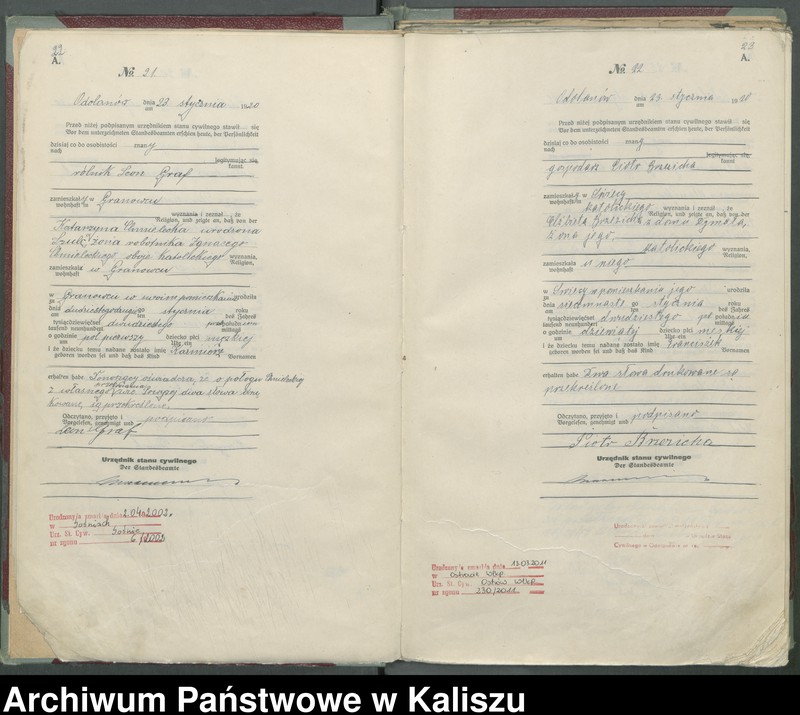 22
A.
No. 21
Odolanów dnia 23 stycznia 1920
am
Przed niżej podpisanym urzędnikiem stanu cywilnego stawił się
Vor dem unterzeichneten Standesbeamten erschien heute, der Persönlichkeit
dzisiaj co do osobistości znany
nach
legitymując się
kannt
rolnik Leon Graf
zamieszkały w Granowcu
wohnhaft in
wyznania i zeznał, że
Religion, und zeigte an, daß von der
Katarzyna urodzona
żona robotnika Ignacego
oboje katolickiego wyznania,
Religion,
zamieszkała w Granowcu
wohnhaft
w Granowcu w swoim pomieszkaniu urodziła
zu
dnia dwudziestego go stycznia roku
am ten des Jahres
tysiącdziewięćset dwudziestego
tausend neunhundert mittags
o godzinie pół pierwszy dziecko płci męzkiej
um Uhr ein
i że dziecku temu nadane zostało imię Kazimierz
geboren worden sei und daß das Kind Vornamen
erhalten habe. oświadcza, że o połogu
z własnego dwa słowa
kowane, są przekreślone.
Odczytano, przyjęto i podpisano
Vorgelesen, genehmigt und
Leon Graf
Urzędnik stanu cywilnego
Der Standesbeamte
Urodzony/a zmarł/a dnia 2.04.2002.
w Sośniach
Urz. St. Cyw. Sośnie
nr zgonu 6/2002
23
A.
No. 22
Odolanów dnia 23 stycznia 1920
am
Przed niżej podpisanym urzędnikiem stanu cywilnego stawił się
Vor dem unterzeichneten Standesbeamten erschien heute, der Persönlichkeit
dzisiaj co do osobistości znany
nach
legitymując się
kannt
gospodarz Piotr Brzezicha
zamieszkały w
wohnhaft in
katolickiego wyznania i zeznał, że
Religion, und zeigte an, daß von der
Elżbieta z domu
żona jego
katolickiego wyznania,
Religion,
zamieszkała u niego
wohnhaft
w w pomieszkaniu jego urodziła
zu
dnia siedmnaste go stycznia roku
am ten des Jahres
tysiącdziewięćset dwudziestego po połud.
tausend neunhundert mittags
o godzinie dziewiątej dziecko płci męzkiej
um Uhr ein
i że dziecku temu nadane zostało imię Franciszek
geboren worden sei und daß das Kind Vornamen
erhalten habe. Dwa słowa drukowane są
przekreślone
Odczytano, przyjęto i podpisano
Vorgelesen, genehmigt und
Piotr Brzezicha
Urzędnik stanu cywilnego
Der Standesbeamte
Urodzony/a zmarł/a dnia 13.03.2011
w Ostrowie Wlkp
Urz. St. Cyw. Ostrów Wlkp
nr zgonu 230/2011
Archiwum Państwowe w Kaliszu